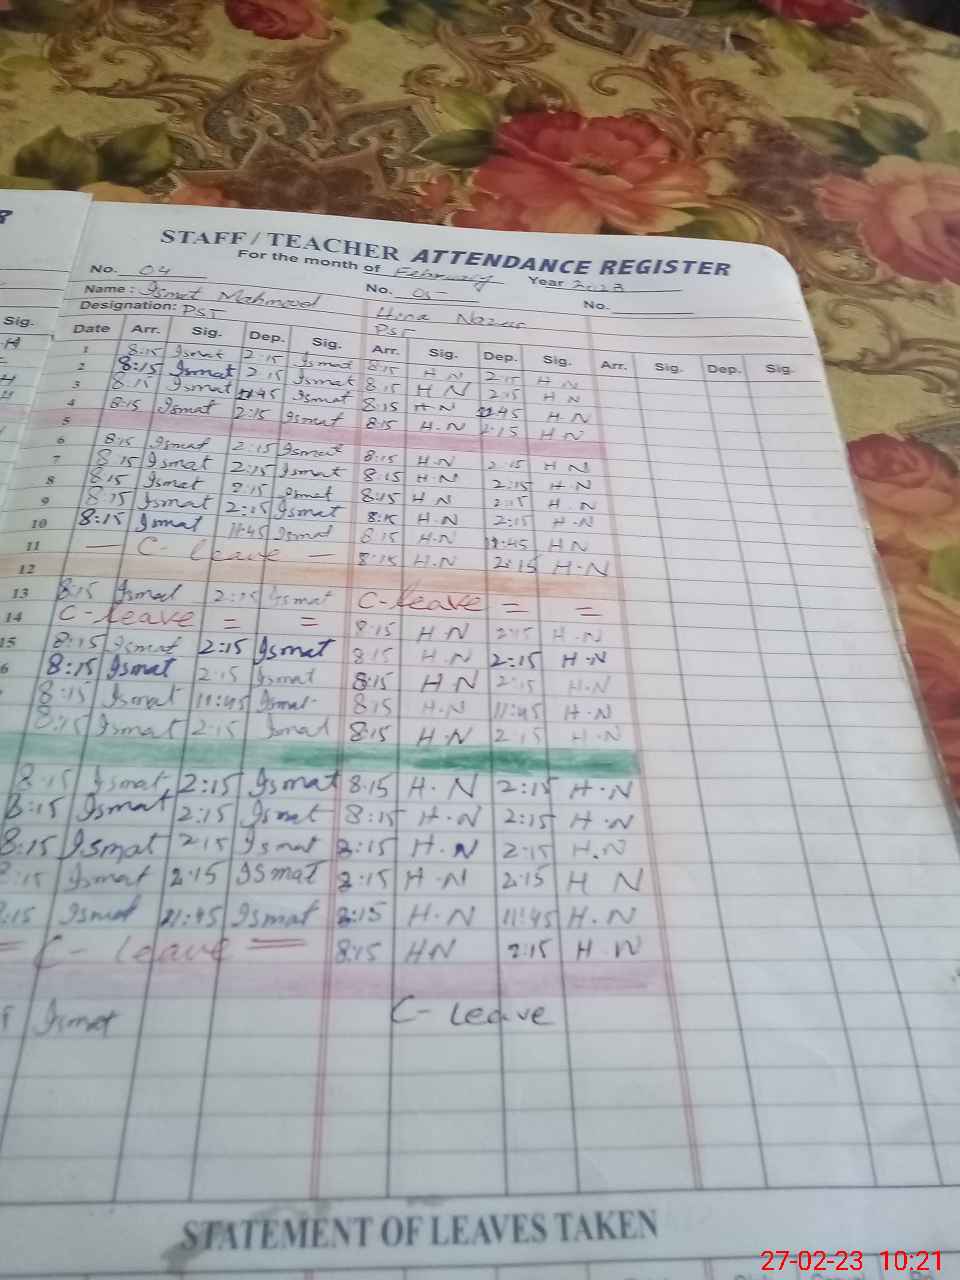 STAFF / TEACHER ATTENDANCE REGISTER
For the month of February Year 2023
No. 04 No. 05 No.
Name : Ismat Mahmood Hina
Designation: PST PST
Date Arr. Sig. Dep. Sig. Arr. Sig. Dep. Sig. Arr. Sig. Dep. Sig.
1 8:15 Ismat 2:15 Ismat 8:15 H N 2:15 H N
2 8:15 Ismat 2:15 Ismat 8:15 H N 2:15 H N
3 8:15 Ismat 11:45 Ismat 8:15 H N 11:45 H N
4 8:15 Ismat 2:15 Ismat 8:15 H.N 2:15 H N
5
6 8:15 Ismat 2:15 Ismat 8:15 H.N 2:15 H N
7 8:15 Ismat 2:15 Ismat 8:15 H.N 2:15 H.N
8 8:15 Ismat 2:15 Ismat 8:15 H N 2:15 H.N
9 8:15 Ismat 2:15 Ismat 8:15 H.N 2:15 H.N
10 8:15 Ismat 11:45 Ismat 8:15 H.N 11:45 H N
11 — C- leave — 8:15 H.N 2:15 H.N
12
13 8:15 Ismat 2:15 Ismat C-leave = =
14 C-leave = = 8:15 H.N 2:15 H.N
15 8:15 Ismat 2:15 Ismat 8:15 H.N 2:15 H.N
6 8:15 Ismat 2:15 Ismat 8:15 H N 2:15 H.N
8:15 Ismat 11:45 Ismat 8:15 H.N 11:45 H.N
8:15 Ismat 2:15 Ismat 8:15 H.N 2:15 H.N
8:15 Ismat 2:15 Ismat 8:15 H.N 2:15 H.N
8:15 Ismat 2:15 Ismat 8:15 H.N 2:15 H.N
8:15 Ismat 2:15 Ismat 8:15 H.N 2:15 H.N
:15 Ismat 2:15 Ismat 8:15 H.N 2:15 H N
:15 Ismat 11:45 Ismat 8:15 H.N 11:45 H.N
= C- leave = 8:15 HN 2:15 H.N
Ismat C- leave
STATEMENT OF LEAVES TAKEN
27-02-23 10:21